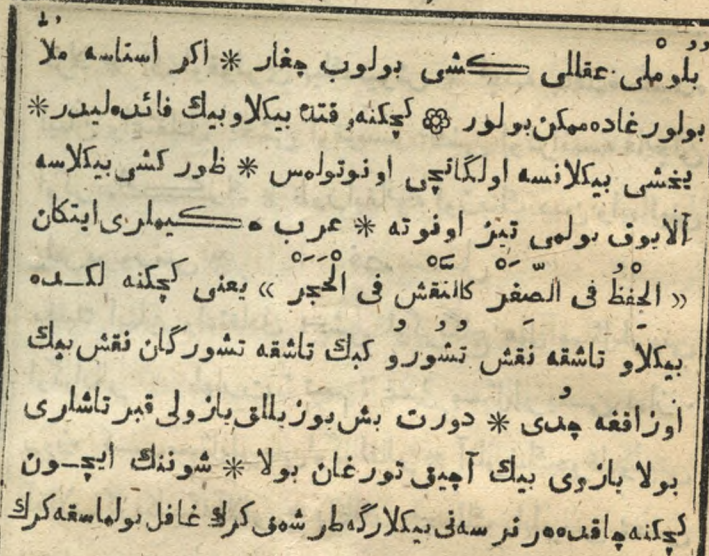 بلوملی عقللی كشی بولوب چغار * اكر استاسه ملا
بولورغاده ممكن بولور ۞ كچكنه وقتده بیكلاو بیك فائده‌لیدر *
یخشی بیكلانسه اولگانچی اونوتولمس * ظور كشی بیكلاسه
آلایوق بولمی تیز اونوته * عرب حكیملری ایتكان
« الْحِفْظُ فی الصِّغَرْ كَالنَّقْش فِی الْحَجَرْ » یعنی كچكنه لكـده
بیكلاو تاشقه نقش تشورو كبك تاشقه تشورگان نقش بیك
اوزاققه چدی * دورت بش یوز یللق یازولی قبر تاشلری
بولا یازوی بیك آچیق تورغان بولا * شوننك ایچـون
كچكنه چاقده هر نرسه‌نی بیكلارگه طرشمق كرك غافل بولماسقه كرك